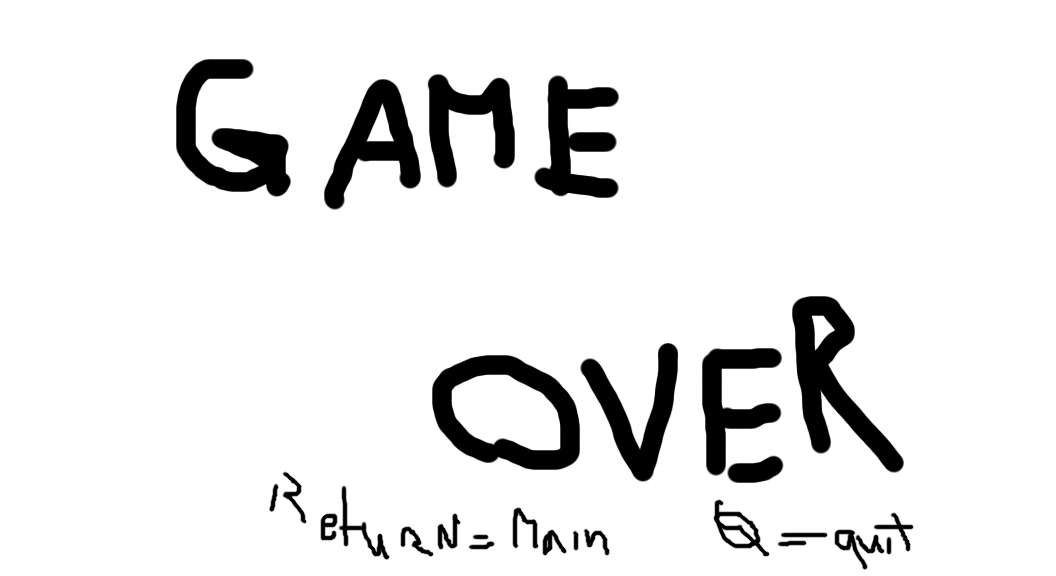 GAME
OVER
Return = Main Q = quit